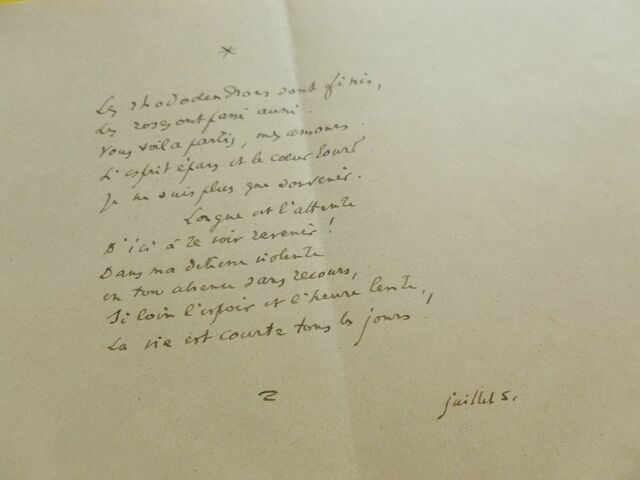 Les rhododendrons sont finis,
Les roses ont passé aussi.
Vous voilà partis, mes amours.
L'esprit épars et le cœur lourd
Je ne suis plus que souvenir.
Longue est l'attente
D'ici à te voir revenir !
Dans ma détresse violente
en ton absence sans recours,
Si loin l'espoir et l'heure lente,
La vie est courte tous les jours.
juillet 5.